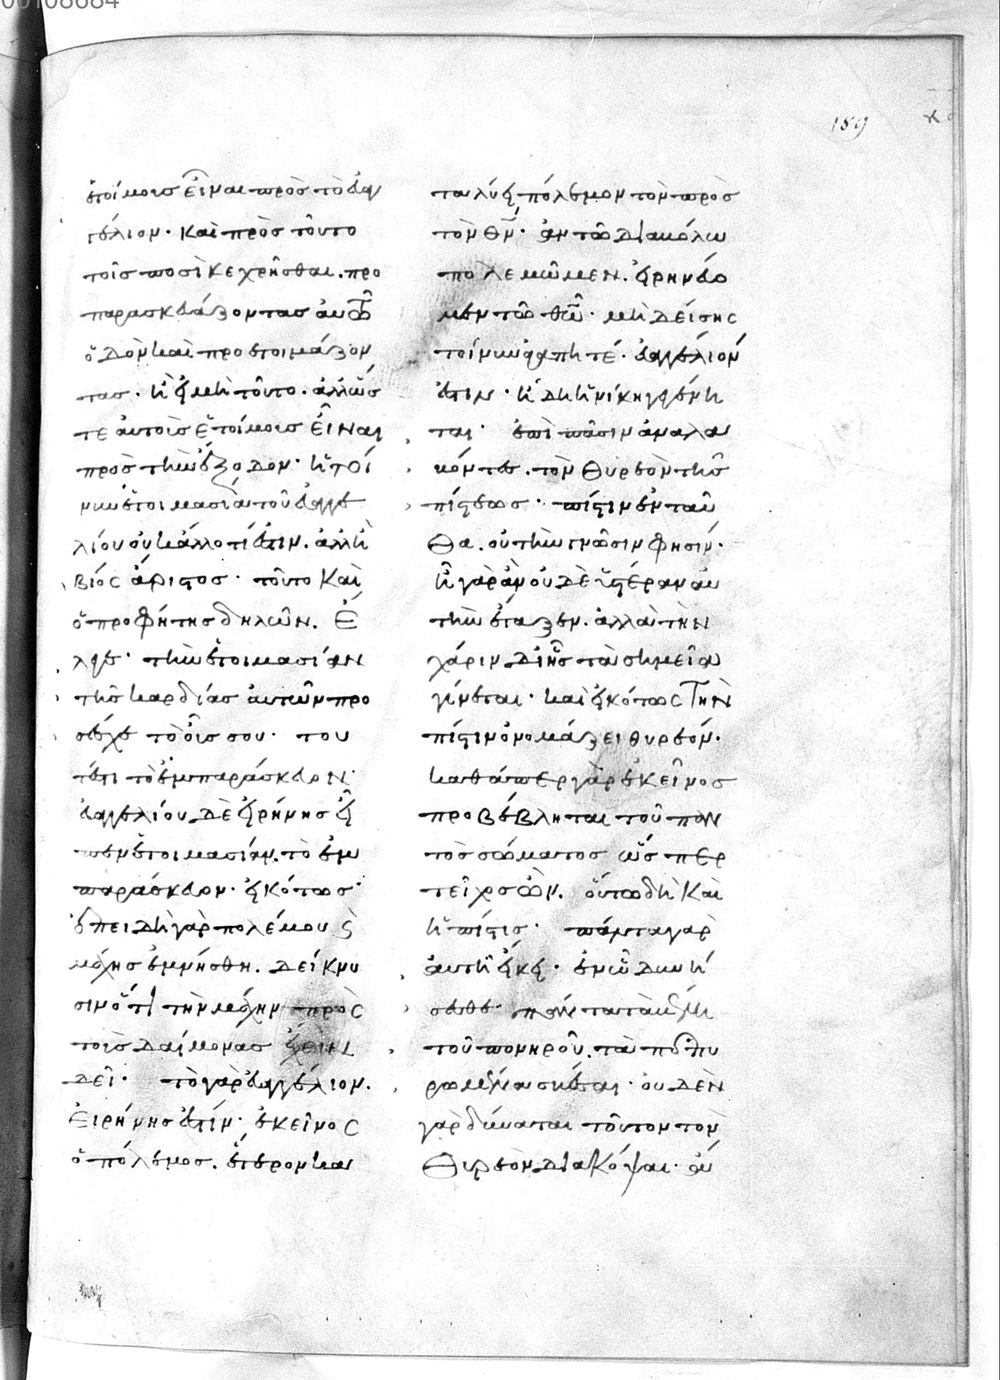 00108684
189
ἑτοίμους εἶναι πρὸς τὸ εὐαγ
γέλιον· καὶ πρὸς τοῦτο
τοῖς ποσὶ κεχρῆσθαι. προ
παρασκευάζοντας αὐτῶ
ὁδὸν καὶ προετοιμάζον
τας· ἢ εἰ μὴ τοῦτο. ἀλλ' ὥς
τε αὐτοὺς ἑτοίμους εἶναι
πρὸς τὴν ἔξοδον· ἡ τοί
νυν ἑτοιμασία τοῦ εὐαγγε
λίου οὐκ ἄλλο τί ἐστιν. ἀλλ' ἢ
βίος ἄριστος· τοῦτο καὶ
ὁ προφήτης δηλῶν. ἔ
λεγε· τὴν ἑτοιμασίαν
τῆς καρδίας αὐτῶν προ
σέσχε τὸ οὖς σου· του
τέστι τὸ ἐμπαράσκευον·
εὐαγγελίου δὲ εἰρήνης εἶ
πεν ἑτοιμασίαν. τὸ ἐμ
παράσκευον· εἰκότως·
ἐπειδὴ γὰρ πολέμου καὶ
μάχης ἐμνήσθη. δείκνυ
σιν ὅτι τὴν μάχην πρὸς
τοὺς δαίμονας ἔχειν
δεῖ· τὸ γὰρ εὐαγγέλιον.
εἰρήνης ἐστίν· ἐκεῖνος
ὁ πόλεμος. ἕτερον κα
ταλύει πόλεμον τὸν πρὸς
τὸν θν· ἂν τῶ διαβόλω
πολεμῶμεν. εἰρηνεύο
μεν τῶ θῶ· μὴ δείσης
τοίνυν ἀγαπητέ. εὐαγγέλιόν
ἐστιν· ἤδη ἡ νίκη γεγένη
ται· ἐπὶ πᾶσιν ἀναλα
βόντες. τὸν θυρεὸν τῆς
πίστεως· πίστιν ἐνταῦ
θα. οὐ τὴν γνῶσιν φησίν·
ἦ γὰρ ἂν οὐδὲ ὑστέραν αὐ
τὴν ἔταξεν. ἀλλὰ τὴν
χάριν δι' ἧς τὰ σημεῖα
γίνεται· καὶ εἰκότως τὴν
πίστιν ὀνομάζει θυρεόν·
καθάπερ γὰρ ἐκεῖνος
προβέβληται τοῦ παν
τὸς σώματος ὥσπερ
τεῖχος ὤν. οὕτω δὴ καὶ
ἡ πίστις· πάντα γὰρ
αὐτῆ εἴκει· ἐν ᾧ δυνή
σεσθε πάντα τὰ βέλη
τοῦ πονηροῦ. τὰ πεπυ
ρωμένα σβέσαι· οὐδὲν
γὰρ δύναται τοῦτον τὸν
θυρεὸν διακόψαι· οὐ